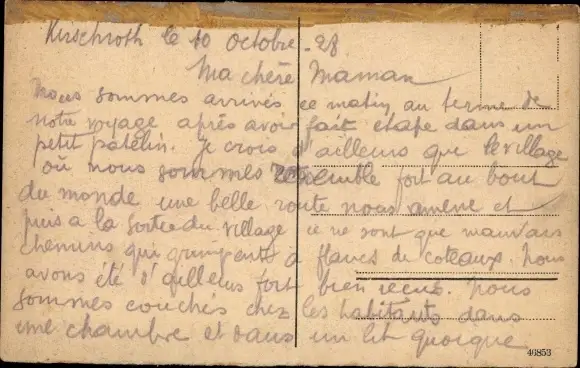 Kirschroth le 10 octobre - 28
Ma chère Maman
Nous sommes arrivés ce matin au terme de
notre voyage après avoir fait étape dans un
petit patelin. Je crois d'ailleurs que le village
où nous sommes ressemble fort au bout
du monde une belle route nous amène et
puis a la sortie du village ce ne sont que mauvais
chemins qui grimpent a flancs de coteaux. Nous
avons été d'ailleurs fort bien reçus. Nous
sommes couchés chez les habitants dans
une chambre et dans un lit quoique
46853